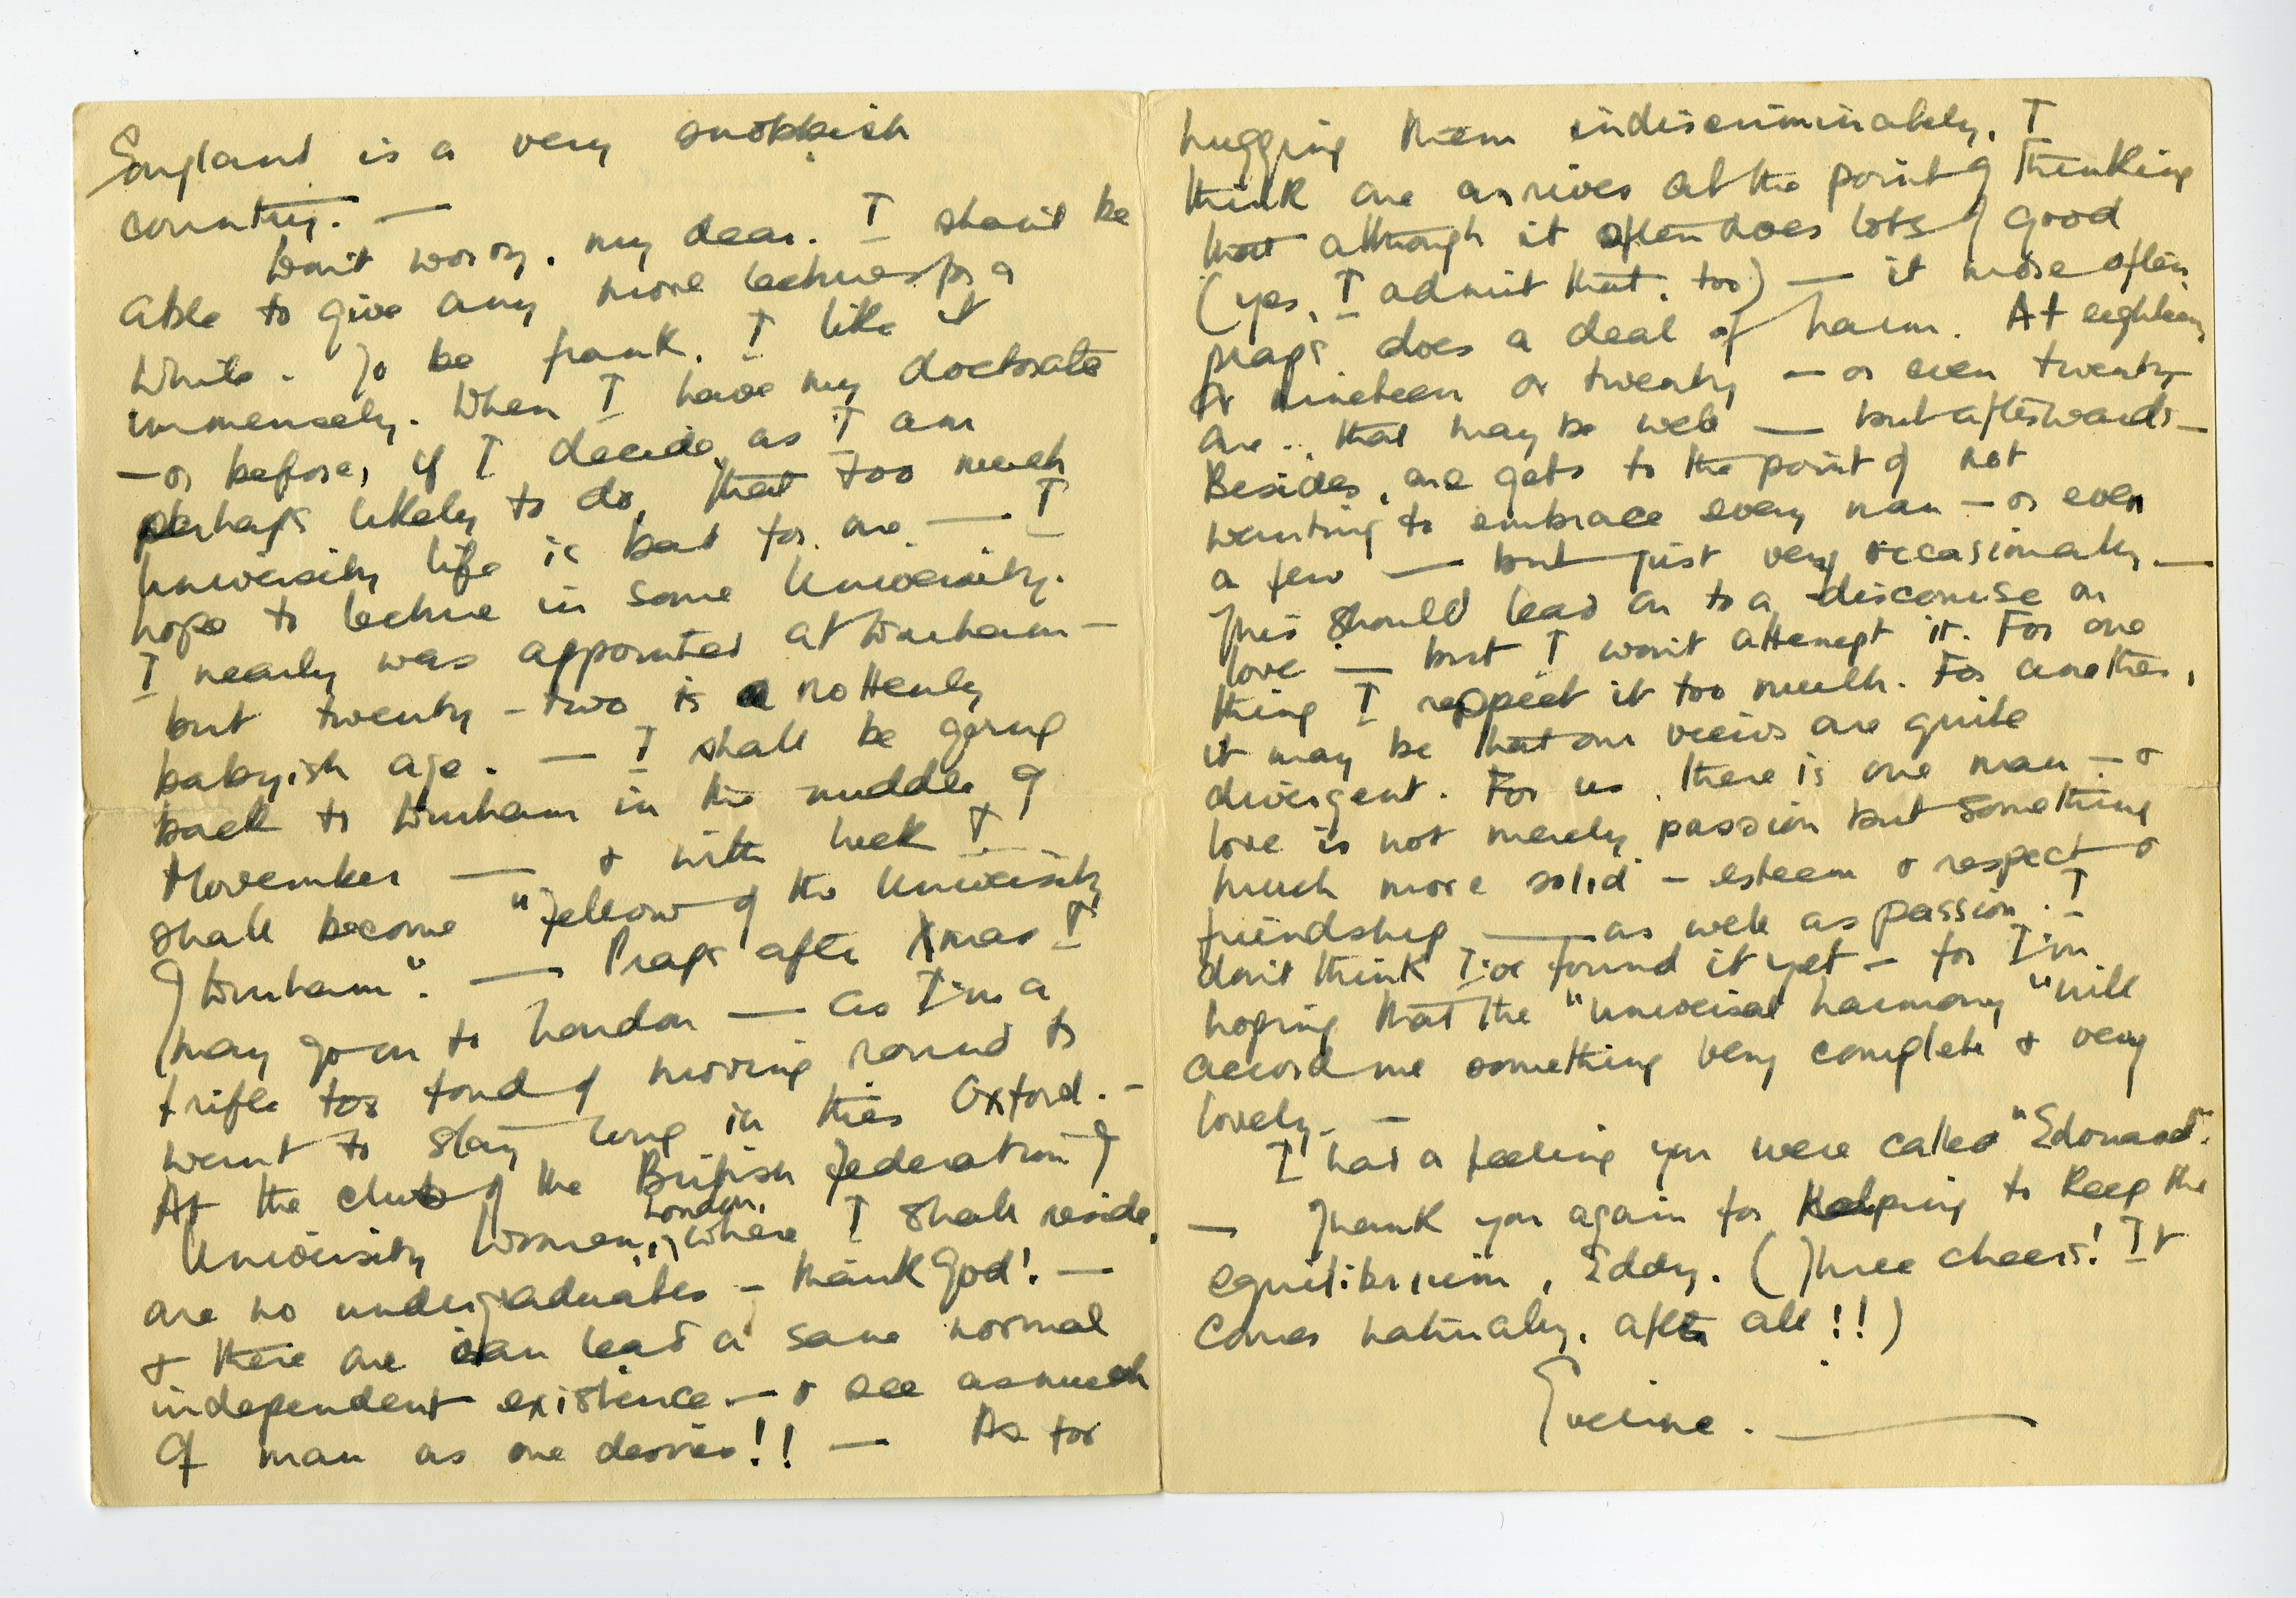 England is a very snobbish
country. —
Don't worry, my dear. I shan't be
able to give any more lectures for a
while. To be frank, I like it
immensely. When I have my doctorate
— or before, if I decide, as I am
perhaps likely to do, that too much
University life is bad for one — I
hope to lecture in some University.
I nearly was appointed at Durham —
but twenty-two is a rottenly
babyish age. — I shall be going
back to Durham in the middle of
November — & with luck I
shall become "Fellow of the University
of Durham". — Praps after Xmas I
may go on to London — as I'm a
trifle too fond of moving round to
want to stay long in this Oxford. —
At the club of the British Federation of
University Women, London, where I shall reside,
are no undergraduates — thank God! —
& there one can lead a sane normal
independent existence — & see as much
of man as one desires!! — As for
hugging them indiscriminately, I
think one arrives at the point of thinking
that although it often does lots of good
(yes, I admit that, too) — it more often
praps does a deal of harm. At eighteen
or nineteen or twenty — or even twenty
one.., that may be well — but afterwards —
Besides, one gets to the point of not
wanting to embrace every man — or even
a few — but just very occasionally —
This should lead on to a discourse on
love — but I won't attempt it. For one
thing I respect it too much. For another,
it may be that our views are quite
divergent. For us, there is one man — &
love is not merely passion but something
much more solid — esteem & respect &
friendship — as well as passion. I
don't think I've found it yet — for I'm
hoping that the "universal harmony" will
accord me something very complete & very
lovely. —
I had a feeling you were called "Edouard".
— Thank you again for helping to keep the
equilibrium, Eddy. (Three cheers! It
comes naturally, after all!!)
Eveline. —